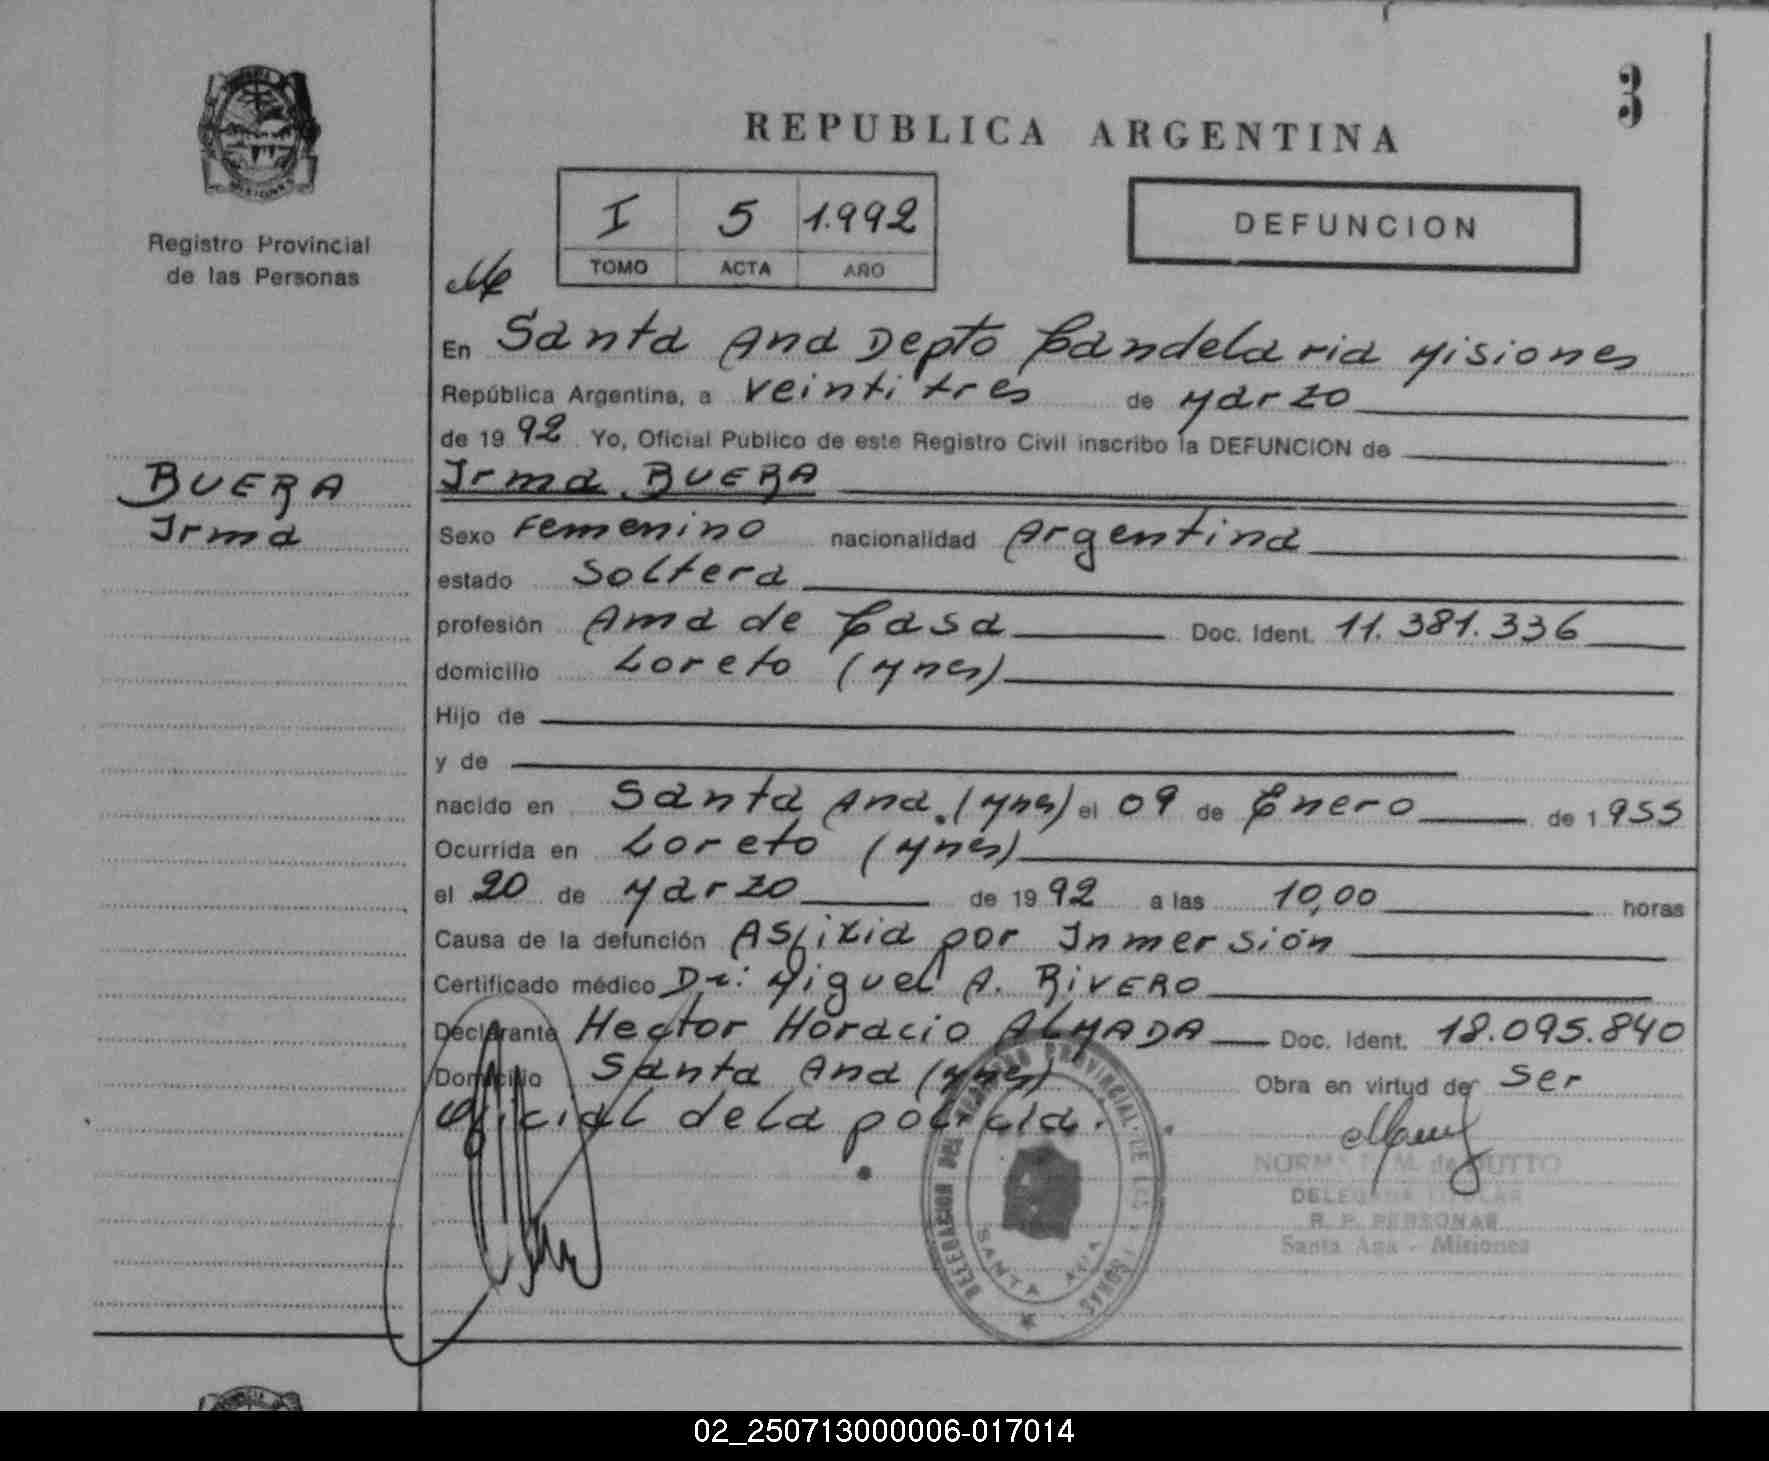 3
REPUBLICA ARGENTINA
I 5 1.992
TOMO ACTA AÑO
DEFUNCION
Registro Provincial
de las Personas
En Santa Ana Depto Candelaria Misiones
República Argentina, a veintitres de Marzo
de 1992. Yo, Oficial Público de este Registro Civil inscribo la DEFUNCION de
Irma BUERA
BUERA
Irma
Sexo Femenino nacionalidad Argentina
estado Soltera
profesión Ama de Casa Doc. Ident. 11.381.336
domicilio Loreto (Mnes)
Hijo de
y de
nacido en Santa Ana. (Mnes) el 09 de Enero de 1955
Ocurrida en Loreto (Mnes)
el 20 de Marzo de 1992 a las 10,00 horas
Causa de la defunción Asfixia por Inmersión
Certificado médico Dr: Miguel A. RIVERO
Declarante Hector Horacio ALMADA Doc. Ident. 18.095.840
Domicilio Santa Ana (Mnes) Obra en virtud de Ser
Oficial de la policia.
NORMA M. de DUTTO
DELEGADA TITULAR
R. P. PERSONAS
Santa Ana - Misiones
DELEGACION DEL REGISTRO PROVINCIAL DE LAS PERSONAS
SANTA ANA
02_250713000006-017014